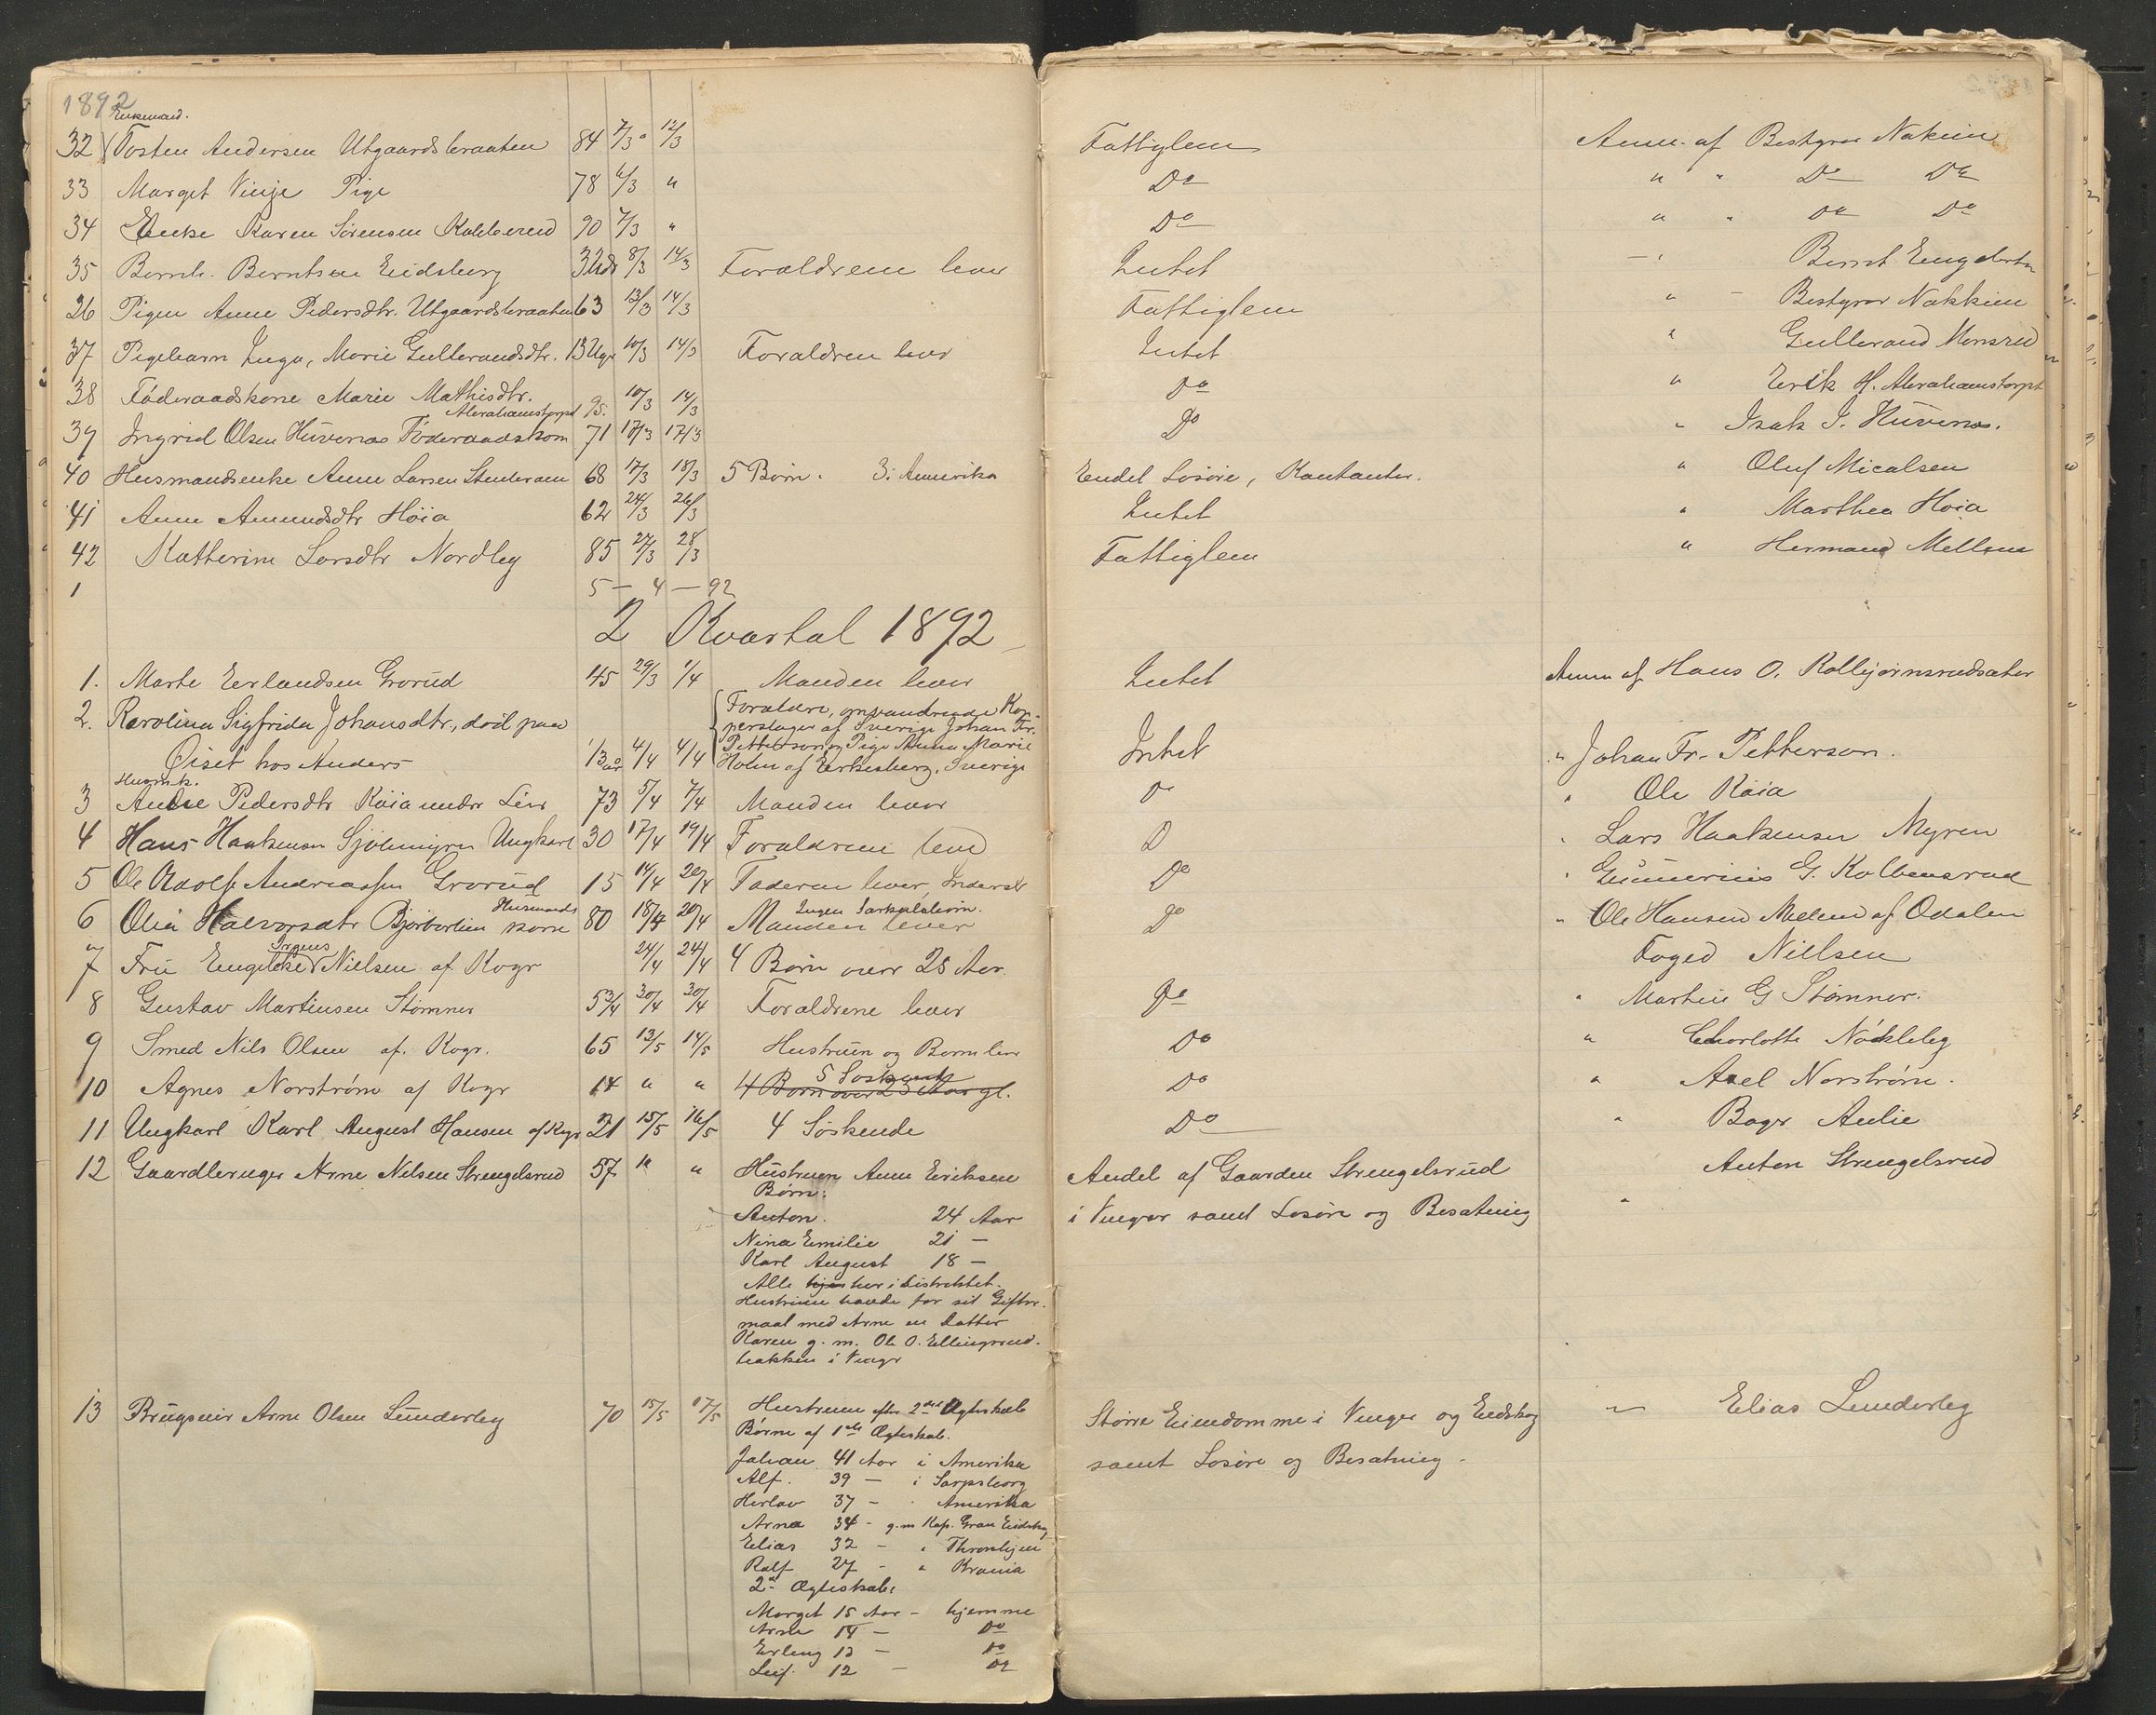 1892
Enkemand.
32 Tosten Andersen Utgaardsbraaten 84 7/3 12/3 Fattiglem Anm. af Bestyrer Nakkim
33 Marget Vinje Pige 78 6/3 " Do " " Do Do
34 Enke Karen Sørensen Kalberud 90 7/3 " Do " " Do Do
35 Bernh. Berntsen Eidsberg 8/3 14/3 Forældrene lever Intet Bernt
36 Pigen Anne Pedersdtr. Utgaardsbraaten 63 13/3 14/3 Fattiglem " - Bestyrer Nakkim
37 Pigebarn Inga, Marie Gulbrandsdtr. 13 Uger 10/3 14/3 Forældren lever Intet " Gulbrand Monsrud
38 Føderaadskone Marie Mathisdtr. 95. 10/3 14/3 Do " Erik H. Abrahamstorpet
Abrahamstorpet
39 Ingrid Olsen Huvenæs Føderaadskone 71 17/3 17/3 Do " Isak I. Huvenæs.
40 Husmandsenke Anne Larsen 68 17/3 18/3 5 Børn. 3 i Amerika Endel Løsøre, Kontanter. " Oluf Micalsen
41 Anne Amundsdtr Høia 62 24/3 26/3 Intet " Marthea Høia
42 Katherine Larsdtr Nordby 85 27/3 28/3 Fattiglem " Herman Mellem
1 5 - 4 - 92
2 Kvartal 1892
1. Marte Erlandsen Grorud 45 29/3 1/4 Manden lever Intet Anm af Hans O. Kolbjørnsrudsæter
2. Karolina Sigfrida Johansdtr, død paa Forældre, omvandrende Kop-
perslager af Sverige Johan Fr.
Pettersson og Pige Anna Marie
Øiset hos Anders 1/3 aar 4/4 4/4 Holm af Eerkesberg, Sverige Intet " Johan Fr. Petterson.
Husmk.
3 Anne Pedersdtr Røia under Lier 73 5/4 7/4 Manden lever Do " Ole Røia
4 Hans Haakensen Sjølimyren Ungkarl 30 17/4 19/4 Forældrene lever D " Lars Haakensen Myren
5 Ole Adolf Andreassen Grorud 15 14/4 20/4 Faderen lever, Inderst Do " Gunnerius G. Kolbensrud
Husmands Ingen Særkulsbørn.
6 Olia Halvorsdtr Bjørberlien kone 80 18/4 20/4 Manden lever Do " Ole Hansen Mellem af Odalen
Irgens
7 Fru Engelke Nielsen af Kogr 24/4 24/4 4 Børn over 25 Aar. Foged Nielsen
8 Gustav Martinsen Stømner 5 3/4 30/4 30/4 Forældrene lever Do " Martin G Stømner.
9 Smed Nils Olsen af. Kogr. 65 13/5 14/5 Hustruen og Børn lever Do " Charlotte Nøkleby
5 Søskende
10 Agnes Norstrøm af Kogr 14 " " 4 Børn over 25 Aar gl. Do " Axel Norstrøm.
11 Ungkarl Karl August Hansen af Kogr 21 15/5 16/5 4 Søskende Do " Bager Aulie
12 Gaardbruger Arne Nilsen Strengelsrud 57 " " Hustruen Anne Eriksen Andel af Gaarden Strengelsrud Anton Strengelsrud
Børn:
Anton. 24 Aar i Vinger samt Løsøre og Besætning "
Nina Emilie 21 -
Karl August 18 -
Alle hjem her i Distriktet.
Hustruen havde før sit Gifter-
maal med Arne en Datter
Karen g. m. Ole O. Ellingsrud-
bakken i Vinger
13 Brugseier Arne Olsen Lunderby 70 15/5 17/5 Hustruen efter 2det Ægteskab Større Eiendomme i Vinger og Eidskog " Elias Lunderby
Børn af 1ste Ægteskab.
Johan 41 Aar i Amerika samt Løsøre og Besætning.
Alf. 39 - i Sarpsborg
Herlov 37 - " Amerika
Arna 34 - g.m Kap. Gran Eidskog
Elias 32 - i Thronhjem
Ralf 27 - " Krania
2det Ægteskab:
Marget 15 Aar - hjemme
Arne 14 - Do
Erling 13 - Do
Leif. 12 - Do